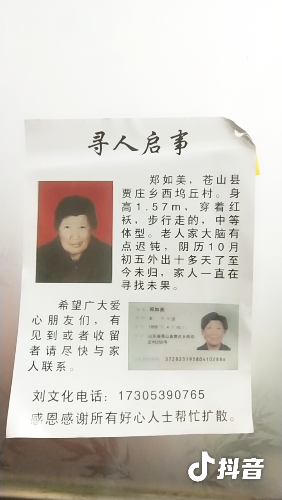 寻人启事
郑如美，苍山县
贾庄乡西坞丘村。身
高1.57m，穿着红
袄，步行走的，中等
体型。老人家大脑有
点迟钝，阴历10月
初五外出十多天了至
今未归，家人一直在
寻找未果。
希望广大爱
心朋友们，有
见到或者收留
者请尽快与家
人联系。
郑如美
刘文化电话：17305390765
感恩感谢所有好心人士帮忙扩散。
抖音